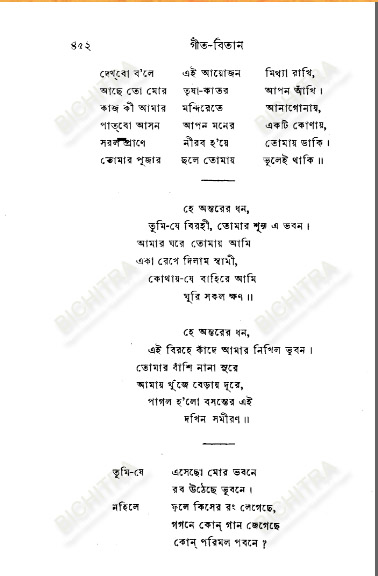 ৪৫২ গীত-বিতান
দেখ্‌বো ব'লে এই আয়োজন মিথ্যা রাখি,
আছে তো মোর তৃষা-কাতর আপন আঁখি।
কাজ কী আমার মন্দিরেতে আনাগোনায়,
পাত্‌বো আসন আপন মনের একটি কোণায়,
সরল প্রাণে নীরব হ'য়ে তোমায় ডাকি।
তোমার পূজার ছলে তোমায় ভুলেই থাকি॥
হে অন্তরের ধন,
তুমি-যে বিরহী, তোমার শূন্য এ ভবন।
আমার ঘরে তোমায় আমি
একা রেখে দিলাম স্বামী,
কোথায়-যে বাহিরে আমি
ঘুরি সকল ক্ষণ॥
হে অন্তরের ধন,
এই বিরহে কাঁদে আমার নিখিল ভুবন।
তোমার বাঁশি নানা সুরে
আমায় খুঁজে বেড়ায় দূরে,
পাগল হ'লো বসন্তের এই
দখিন সমীরণ॥
তুমি-যে এসেছো মোর ভবনে
রব উঠেছে ভুবনে।
নহিলে ফুলে কিসের রং লেগেছে,
গগনে কোন্ গান জেগেছে
কোন্ পরিমল পবনে?
BICHITRA
BICHITRA
BICHITRA
BICHITRA
BICHITRA
BICHITRA